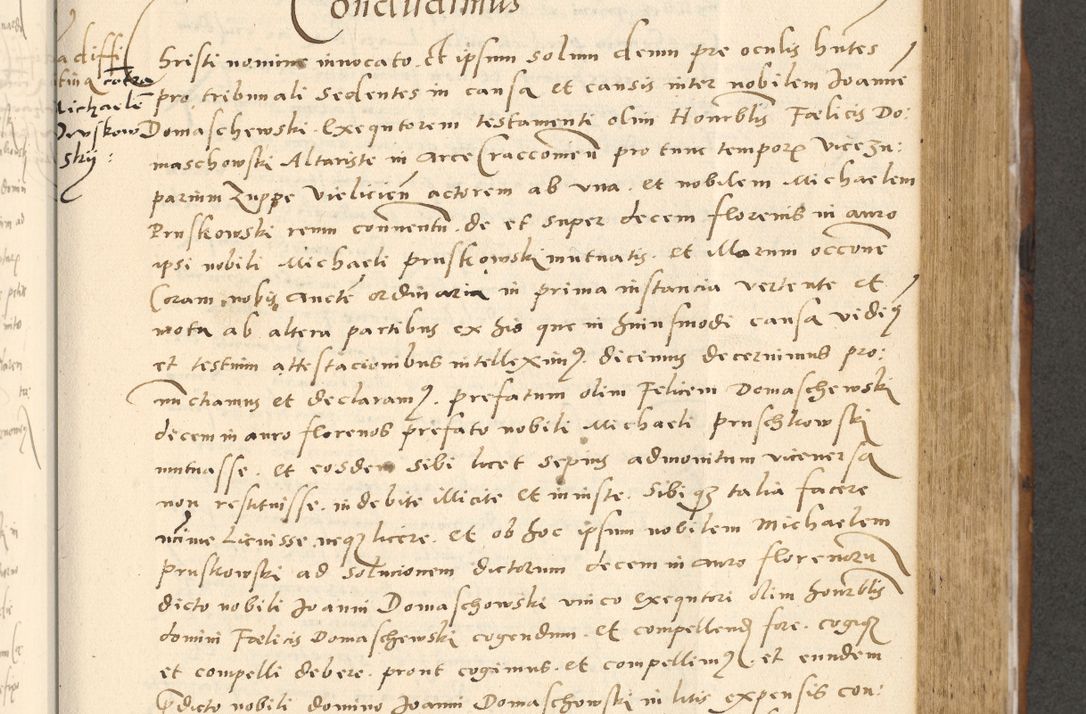 Concludimus
a diffi
tiua contra
Michaelē
Pruskow
skij :
hristi nomine innocato. Et ipsum solum deum pre oculis hūtes
pro tribunali sedentes in causa et causis inter nobilem Joannē
Domaschewski. Exequtorem testamenti olim Honrblis Fœlicis Do:
maschowski Altariste in Arce Craccouieñ pro tunc temporꝝ vicezu:
parium Zuppe Vielicieñ actorem ab vna. et nobilem Michaelem
Pruskowski reum conuentū. de et super decem florenis in auro
ipsi nobili Michaeli Pruskowski mutuatis. et illarum occōne
Coram nobis auctē ordinaria in prima instancia vertente et
mota ab altera partibus ex his que in huiusmodi causa vidimꝰ
et testium attestacionibus intelleximꝰ. dicimus decernimus pro:
nunctiamus et declaramꝰ. prefatum olim Felicem Domaschewski
decem in auro florenos prefato nobili Michaeli Pruschkowski
mutuasse. et eosdem sibi licet sepius admonitum viceuersa
non restituisse. indebite illicite et iniuste. sibiqꝫ talia facere
minime licuisse neqꝫ licere. et ob hoc ipsum nobilem Michaelem
Pruskowski ad solucionem dictorum decem in auro florenorū
dicto nobili Joanni Domaschowski vnico exequtori olim honrblis
domini Fœlicis Domaschewski cogendum. et compellendū fore. cogiqꝫ
et compelli debere. prout cogimus. et compellimꝰ. et eundem
p̄dicto nobili domino Joanni Domaschowski in litis expensis con: